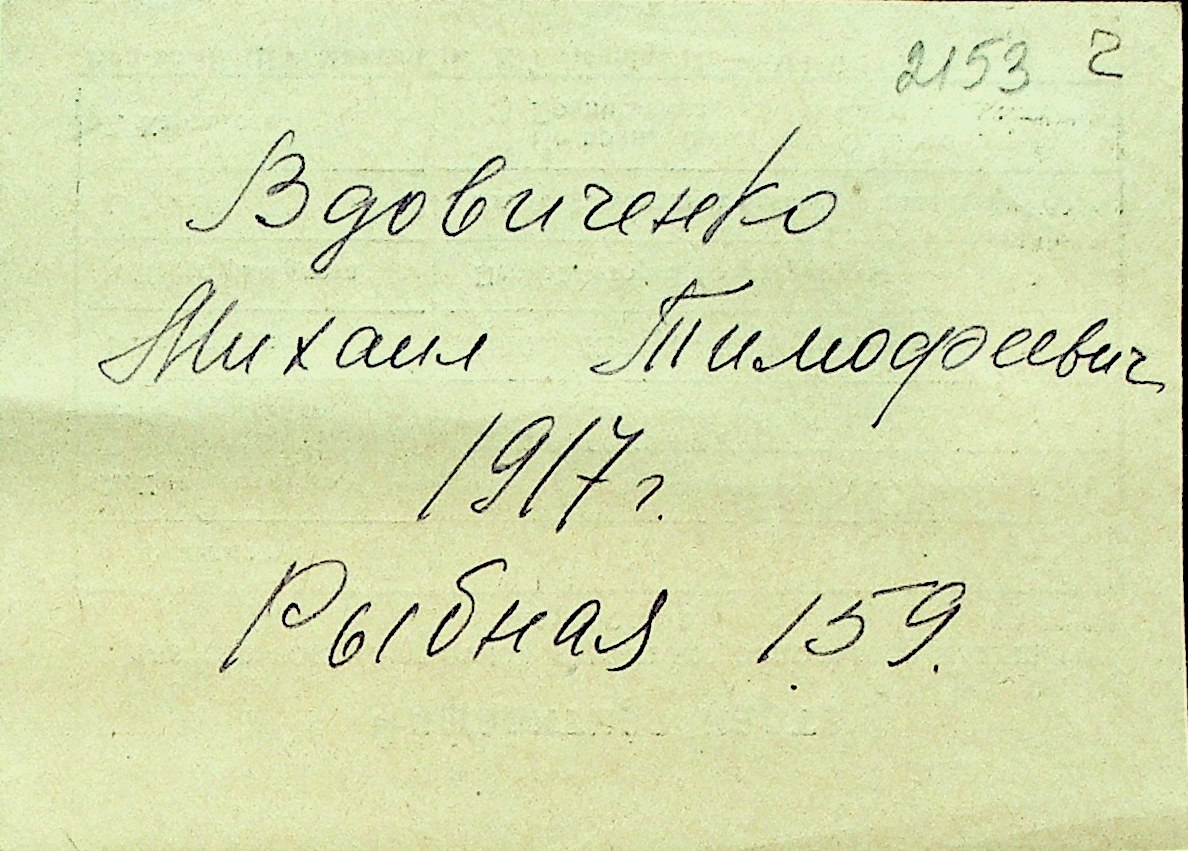 2153 г
Вдовиченко
Михаил Тимофеевич
1917 г.
Рыбная 159.